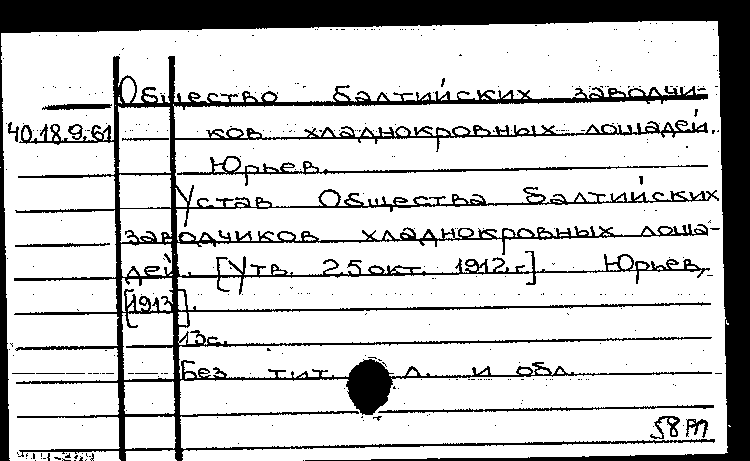 Общество балтийских заводчи-
40.18.9.61 ков хладнокровных лошадей.
Юрьев.
Устав Общества балтийских
заводчиков хладнокровных лоша-
дей. [Утв. 25 окт. 1912 г.]. Юрьев,
[1913].
13с.
Без тит. л. и обл.